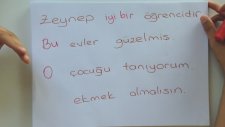 Zeynep iyi bir öğrencidir
Bu evler güzelmiş
O çocuğu tanıyorum
ekmek almalısın.